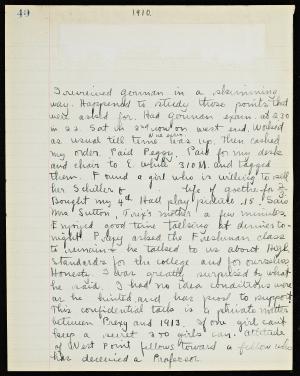 49
1910.
I reviewed German in a skimming
way. Happened to study those points that
were asked for. Had German exam at 2:30
in 22. Sat in 2nd row on west end. Worked
as usual till time was up. Then cashed
my order. Paid Peggy. Paid for my desk
and chair to E. White 310 M. and tagged
them. Found a girl who is willing to sell
her Schiller & life of Goethe for
Bought my 4th Hall play picture .15 Saw
Mrs Sutton, Trix's mother a few minutes
Enjoyed good time talking at dinner to-
night. Prexy asked the Freshman class
to remain & he talked to us about High
Standards for the college and for ourselves
Honesty. I was greatly surprised by what
he said. I had no idea conditions were
as he hinted and has proof to support
This confidential talk is a private matter
between Prexy and 1913. If one girl can't
keep a secret 270 girls can. Attitude
of West Point fellows toward a fellow who
has deceived a Professor.